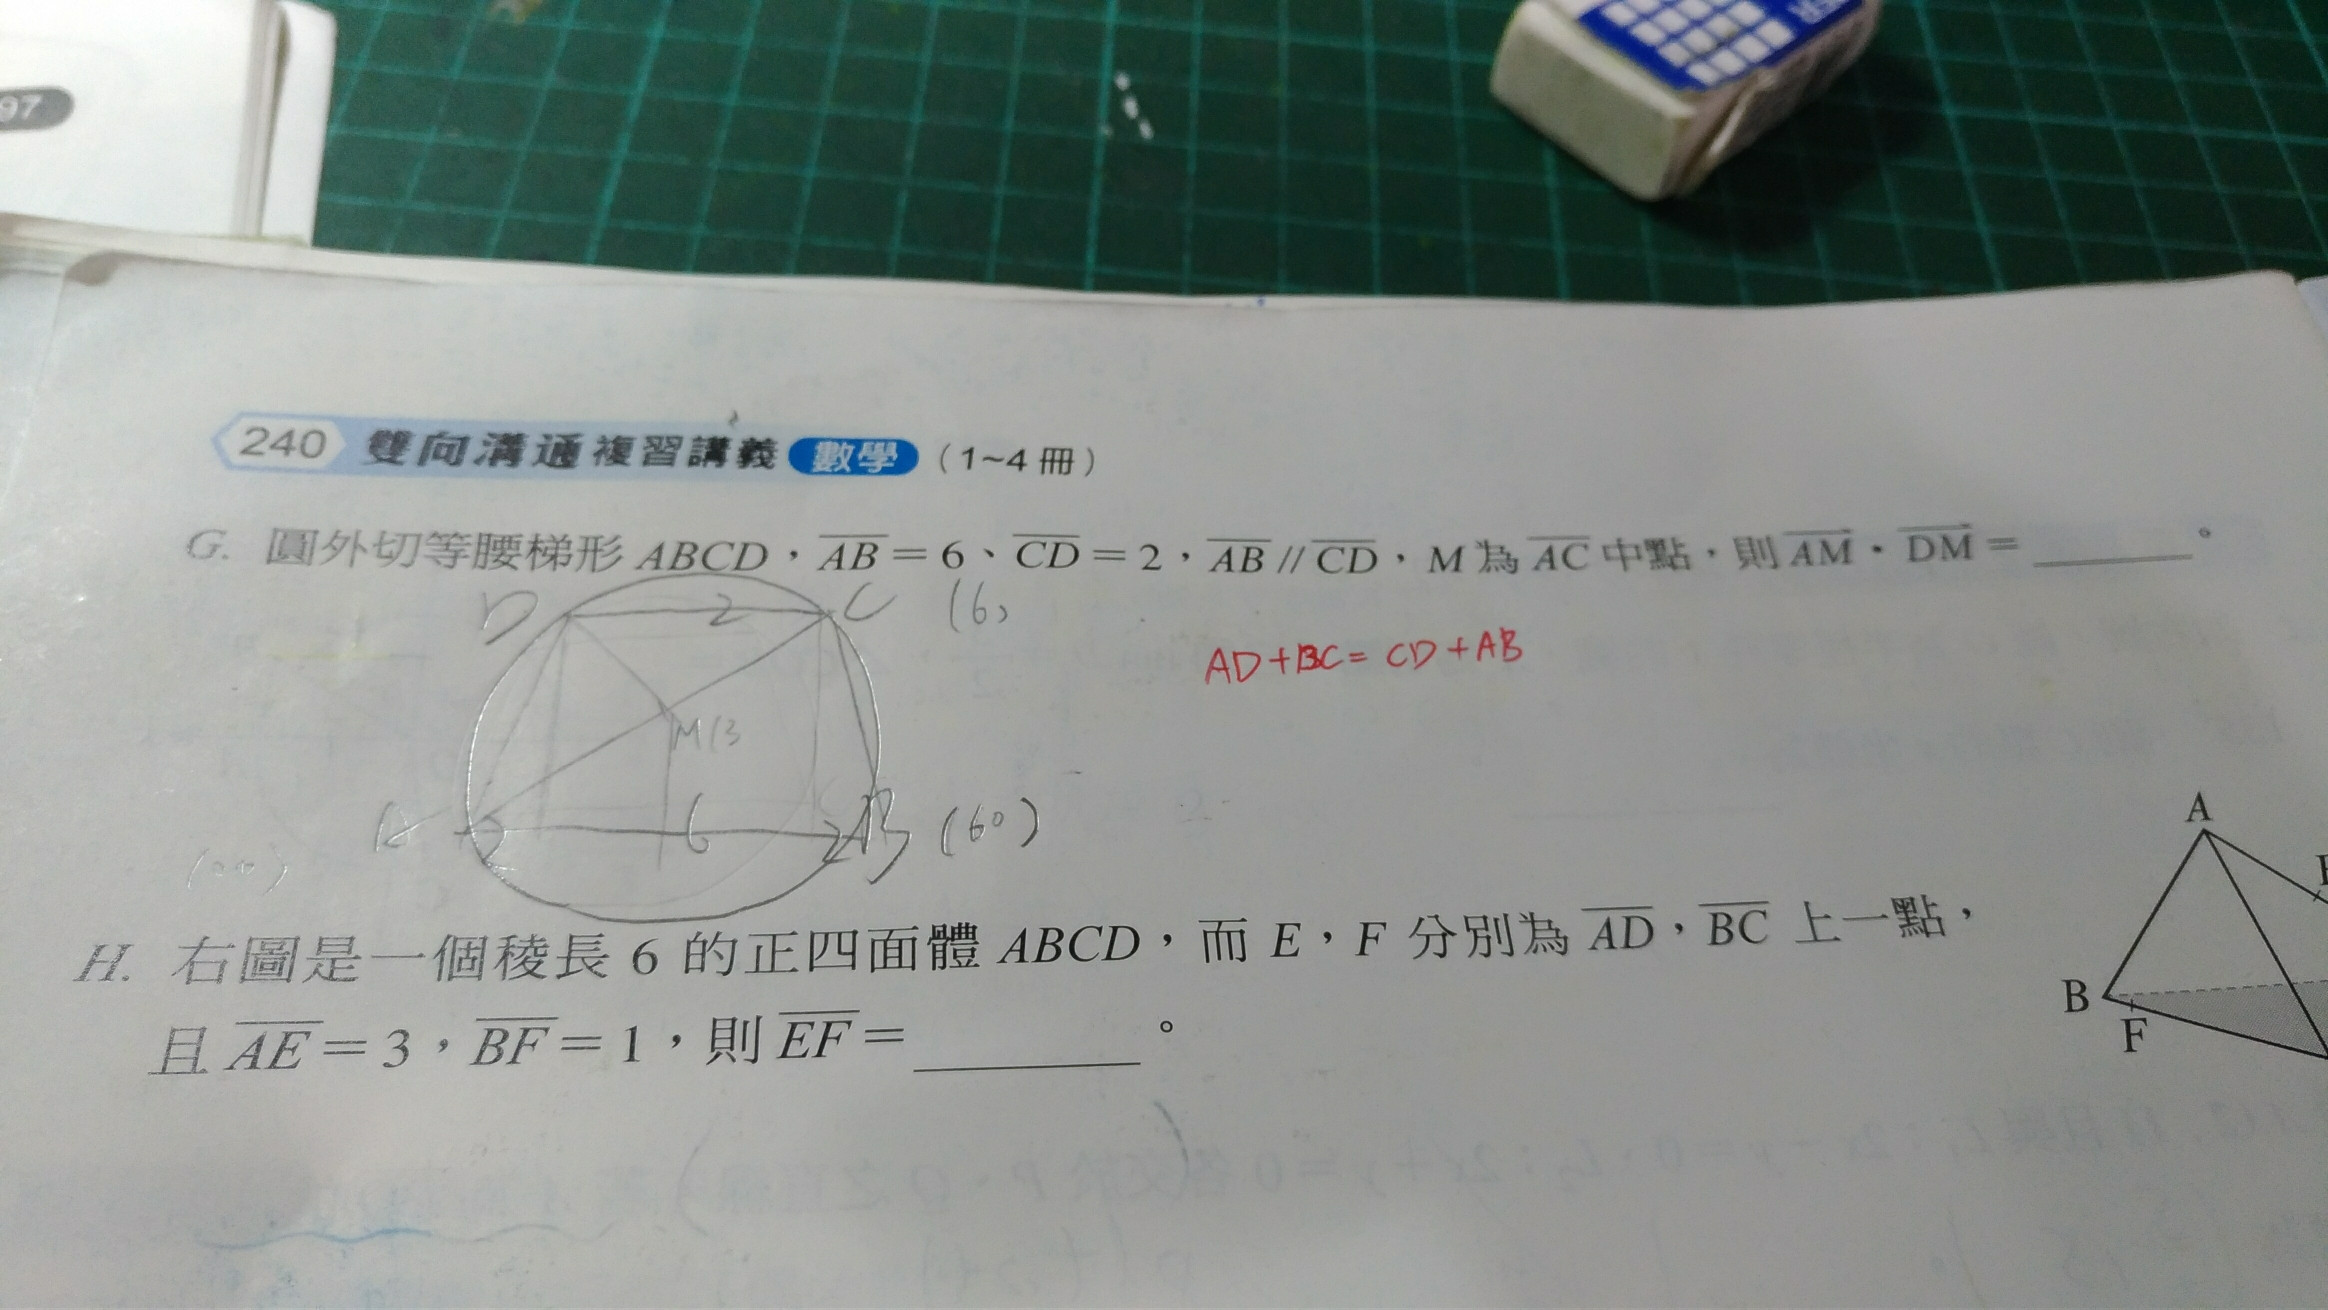 97
240 雙向溝通複習講義 數學 (1~4 冊)
G. 圓外切等腰梯形 ABCD，AB = 6、CD = 2，AB // CD，M 為 AC 中點，則 AM · DM = ______。
D 2 C (6,
AD+BC= CD+AB
M(3
A 6 B (60)
(00)
H. 右圖是一個稜長 6 的正四面體 ABCD，而 E，F 分別為 AD，BC 上一點，
且 AE = 3，BF = 1，則 EF = ______。
A
B
F